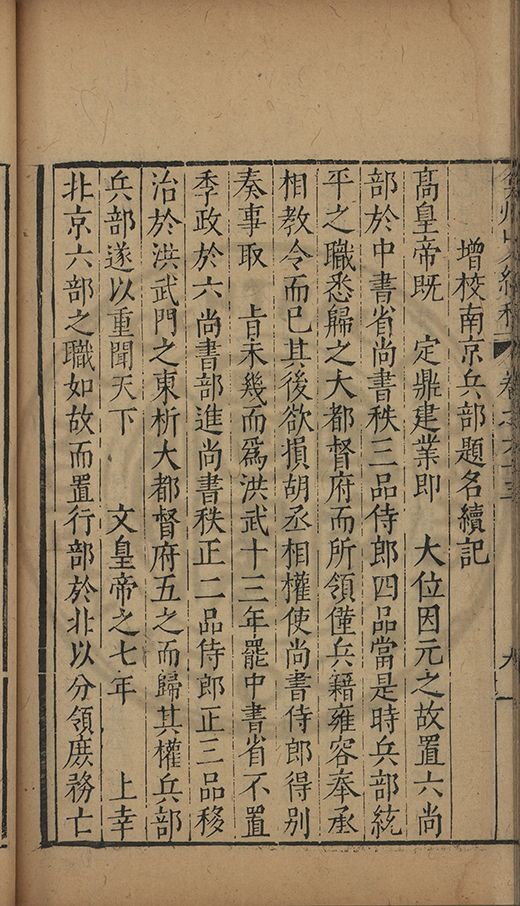 增校南京兵部題名續記
髙皇帝既 定鼎建業即 大位因元之故置六尚
部於中書省尚書秩三品侍郎四品當是時兵部統
平之職悉歸之大都督府而所領僅兵籍雍容奉承
相教令而已其後欲損胡丞相權使尚書侍郎得別
奏事取 旨未幾而爲洪武十三年罷中書省不置
季政於六尚書部進尚書秩正二品侍郎正三品移
治於洪武門之東析大都督府五之而歸其權兵部
兵部遂以重聞天下 文皇帝之七年 上幸
北京六部之職如故而置行部於北以分領庶務亡